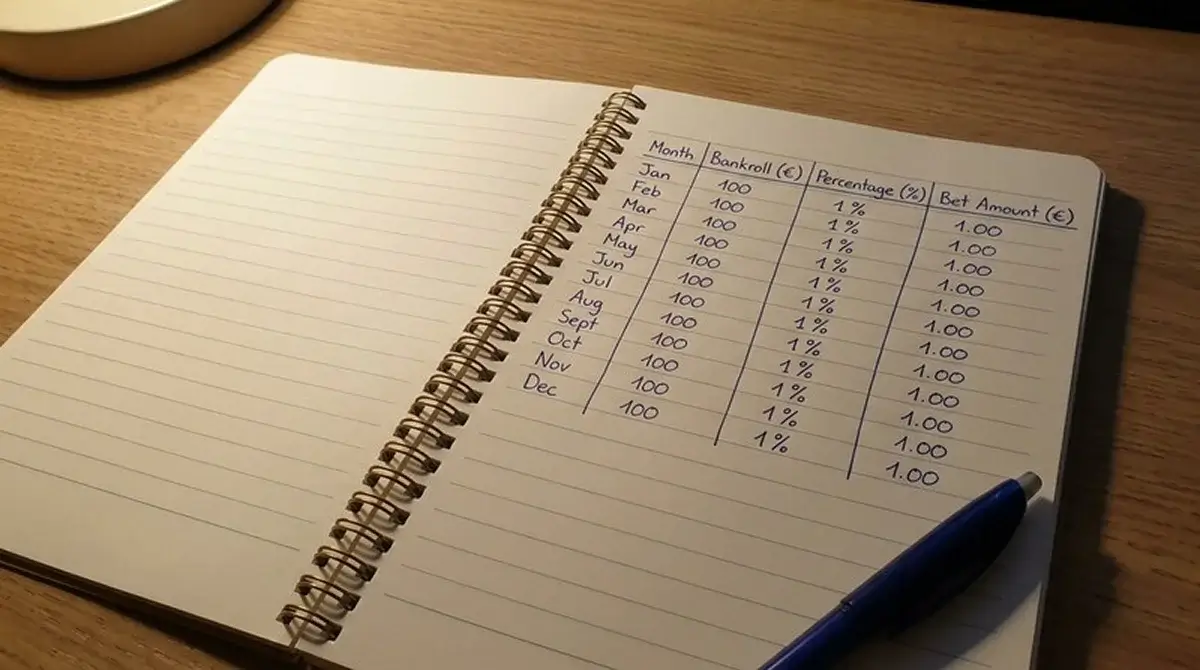 Month Bankroll (€) Percentage (%) Bet Amount (€)
Jan 100 1% 1.00
Feb 100 1% 1.00
Mar 100 1% 1.00
Apr 100 1% 1.00
May 100 1% 1.00
Jun 100 1% 1.00
Jul 100 1% 1.00
Aug 100 1% 1.00
Sept 100 1% 1.00
Oct 100 1% 1.00
Nov 100 1% 1.00
Dec 100 1% 1.00